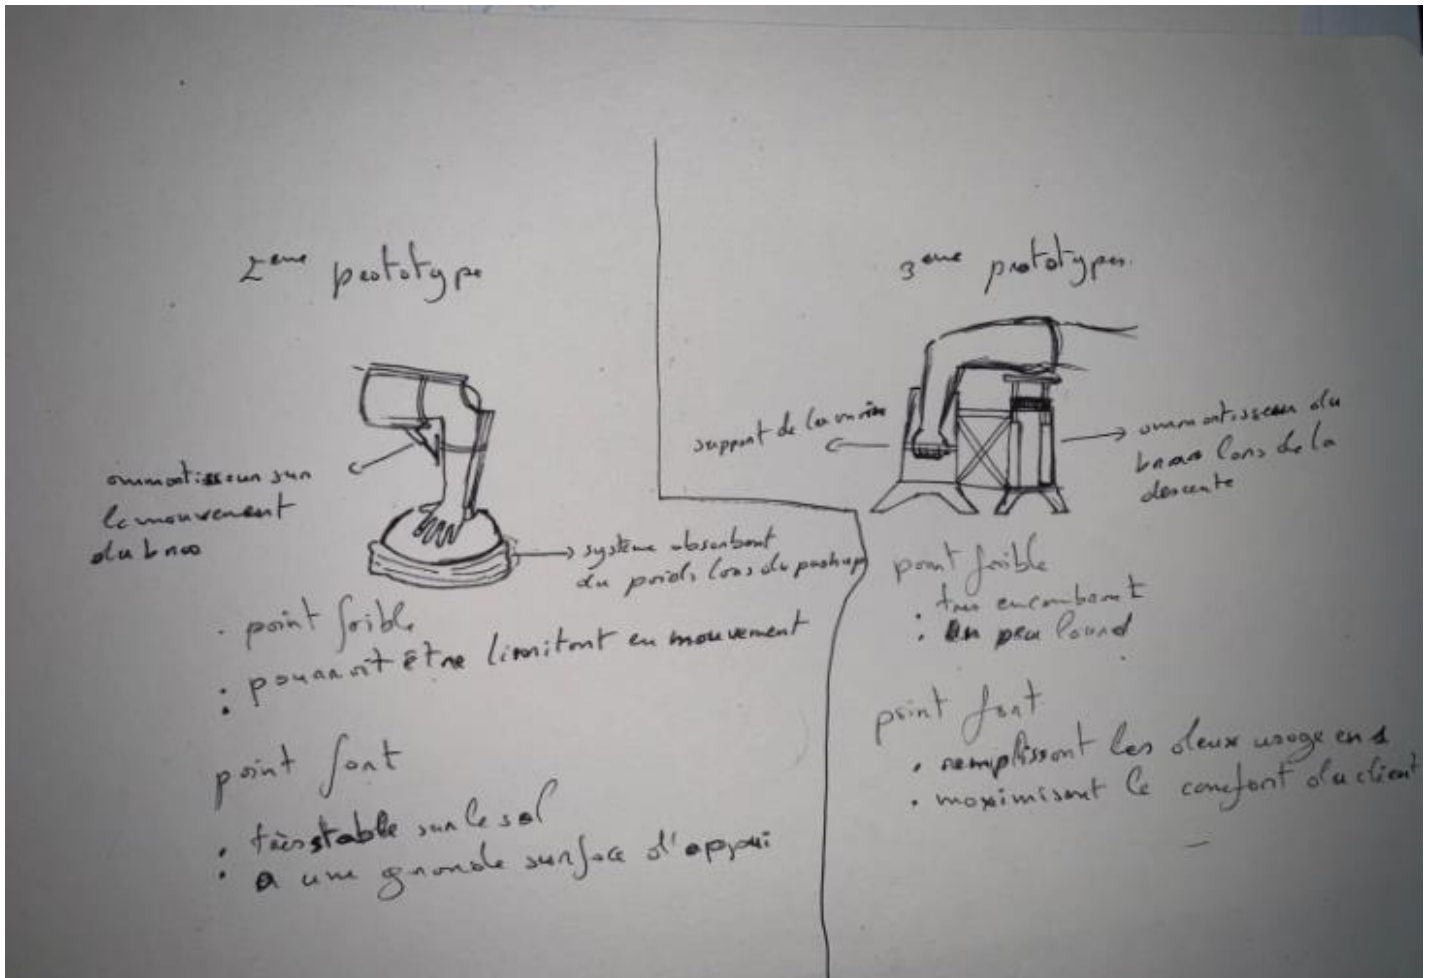 2eme prototype
ammortisseur sur
le mouvement
du bras
système absorbant
du poids lors du pushup
point faible
pourrait être limitant en mouvement
point fort
très stable sur le sol
a une grande surface d'appui
3eme prototypes
support de la main
ammortisseur du
bras lors de la
descente
point faible
tres encombrant
un peu lourd
point fort
remplissant les deux usage en 1
maximisant le confort du client